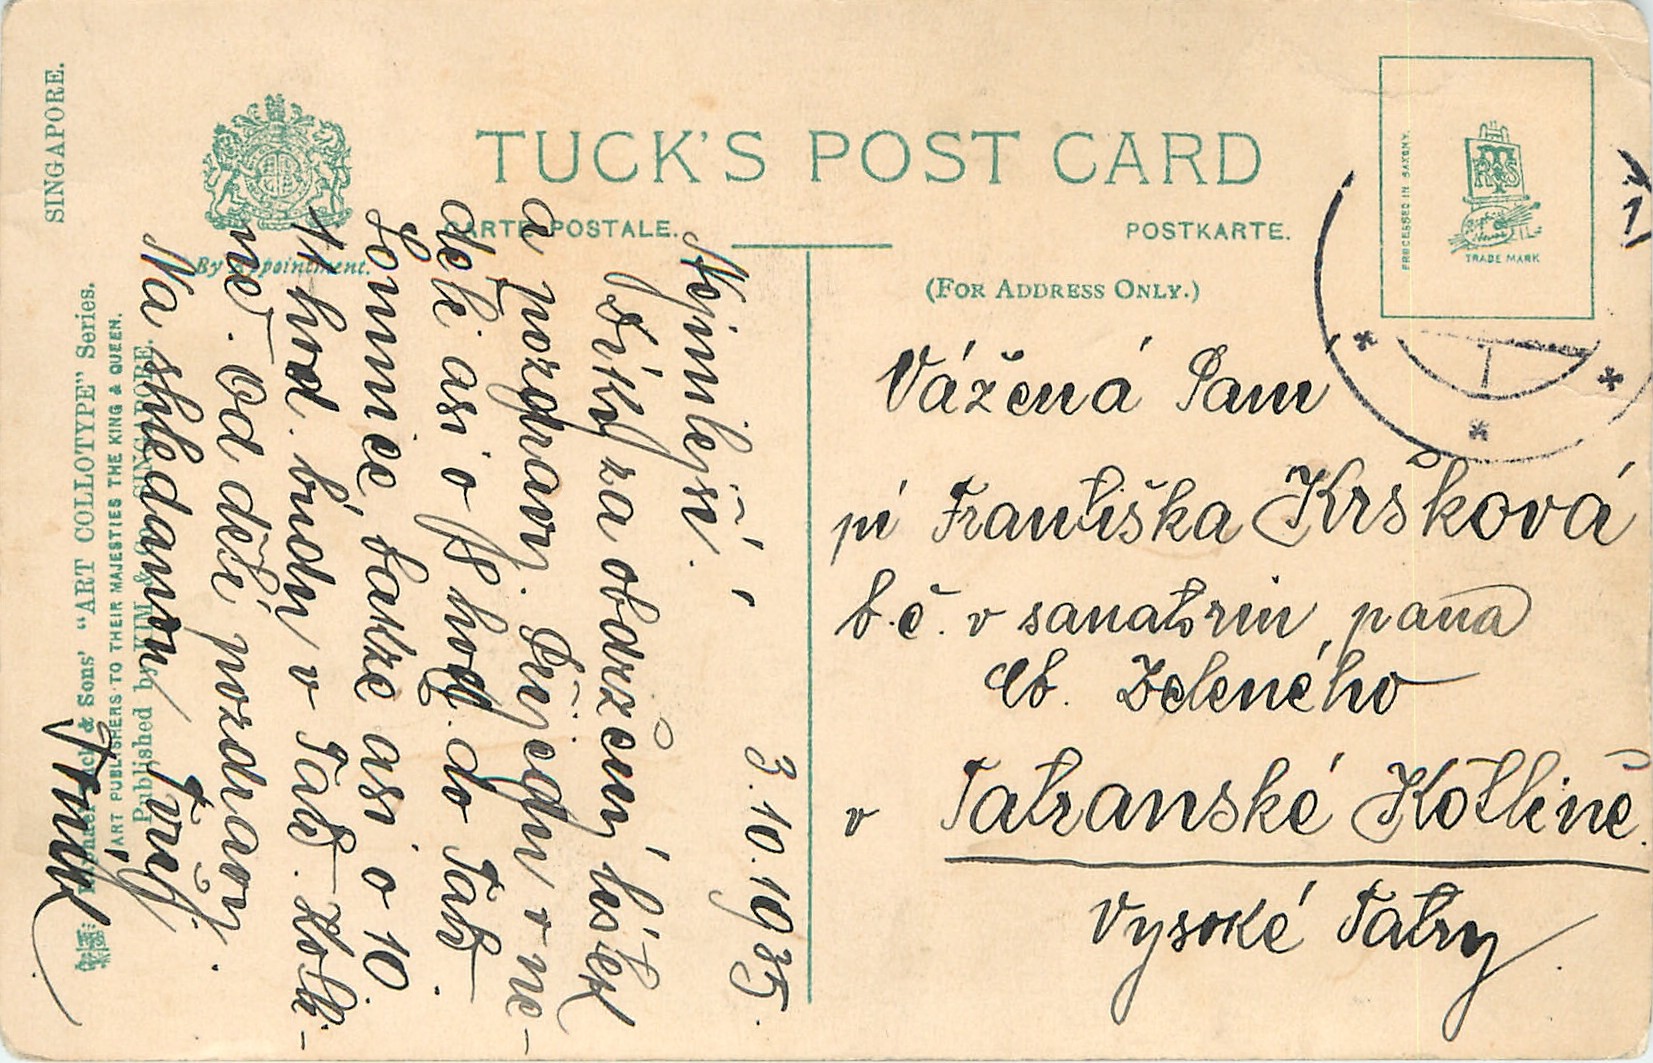 SINGAPORE.
TUCK'S POST CARD
CARTE POSTALE.
POSTKARTE.
(FOR ADDRESS ONLY.)
By Appointment.
PROCESSED IN SAXONY.
TRADE MARK
Raphael Tuck & Sons' "ART COLLOTYPE" Series.
ART PUBLISHERS TO THEIR MAJESTIES THE KING & QUEEN.
Published by KIM & Co. SINGAPORE.
3.10.1935.
Nejmilejší!
Díky za obdržený lístek
a pozdravy. Přijedu v ne-
děli asi o ½8 hod. do Tatr.
Lomnice, takže asi o 10.
11 hod. budu v Tatr. Kotli-
ně. Od dětí pozdravy.
Na shledanou, Tvůj
Vážená Paní
pí Františka Kršková
t.č. v sanatoriu pana
Zeleného
v Tatranské Kotlině.
Vysoké Tatry.